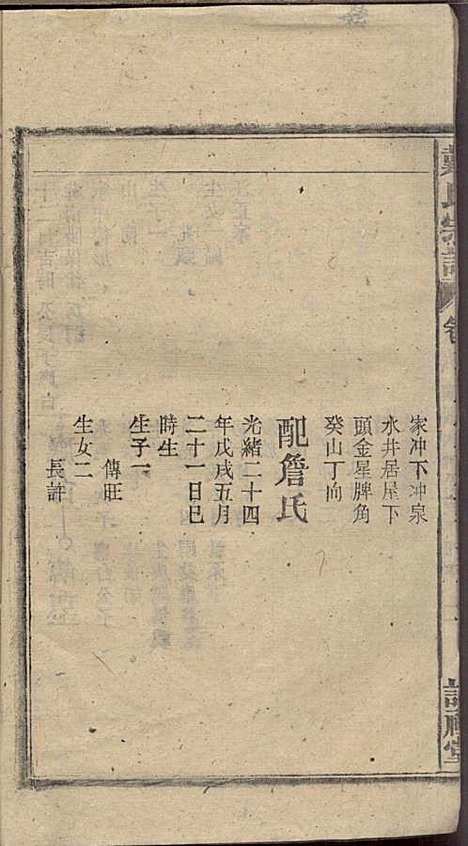 戴氏宗譜
卷
家冲下冲泉
水井居屋下
頭金星牌角
癸山丁向
配詹氏
光緒二十四
年戊戌五月
二十一日巳
時生
生子一
傳旺
生女二
長許